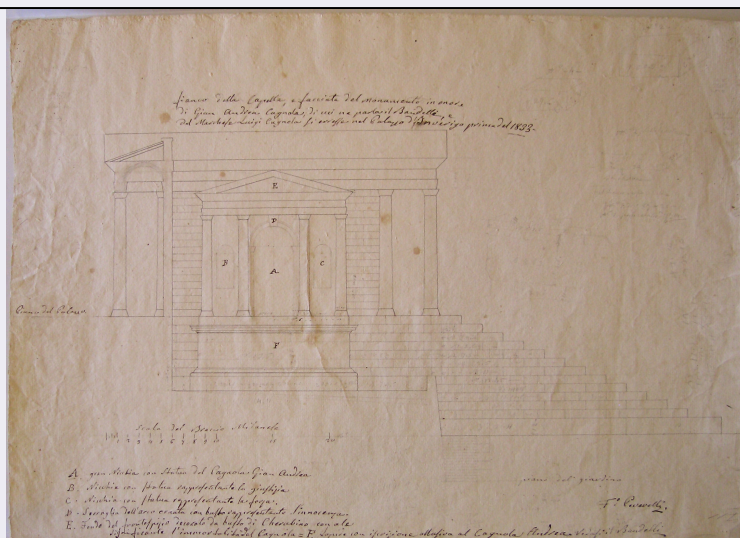 fianco della Capella, e facciata del monumento in onore
di Gian Andrea Cagnola, di cui ne parla il Bandello
del Marchese Luigi Cagnola si eresse nel Palazzo d'Inverigo prima del 1833.
E
D
B
A
C
Piano del Palazzo
F
Scala del Braccio Milanese
piano del giardino
A gran Nicchia con Statua del Cagnola Gian Andrea
B Nicchia con statua rappresentante la giustizia
C Nicchia con statua rappresentante la forza.
D Serraglia dell'arco ornata con busto rappresentante l'innocenza.
E. Fondo del frontespizio decorato da busto di Cherubino con ale
l'immortalità del Cagnola = F con iscrizione allusiva al Cagnola Andrea